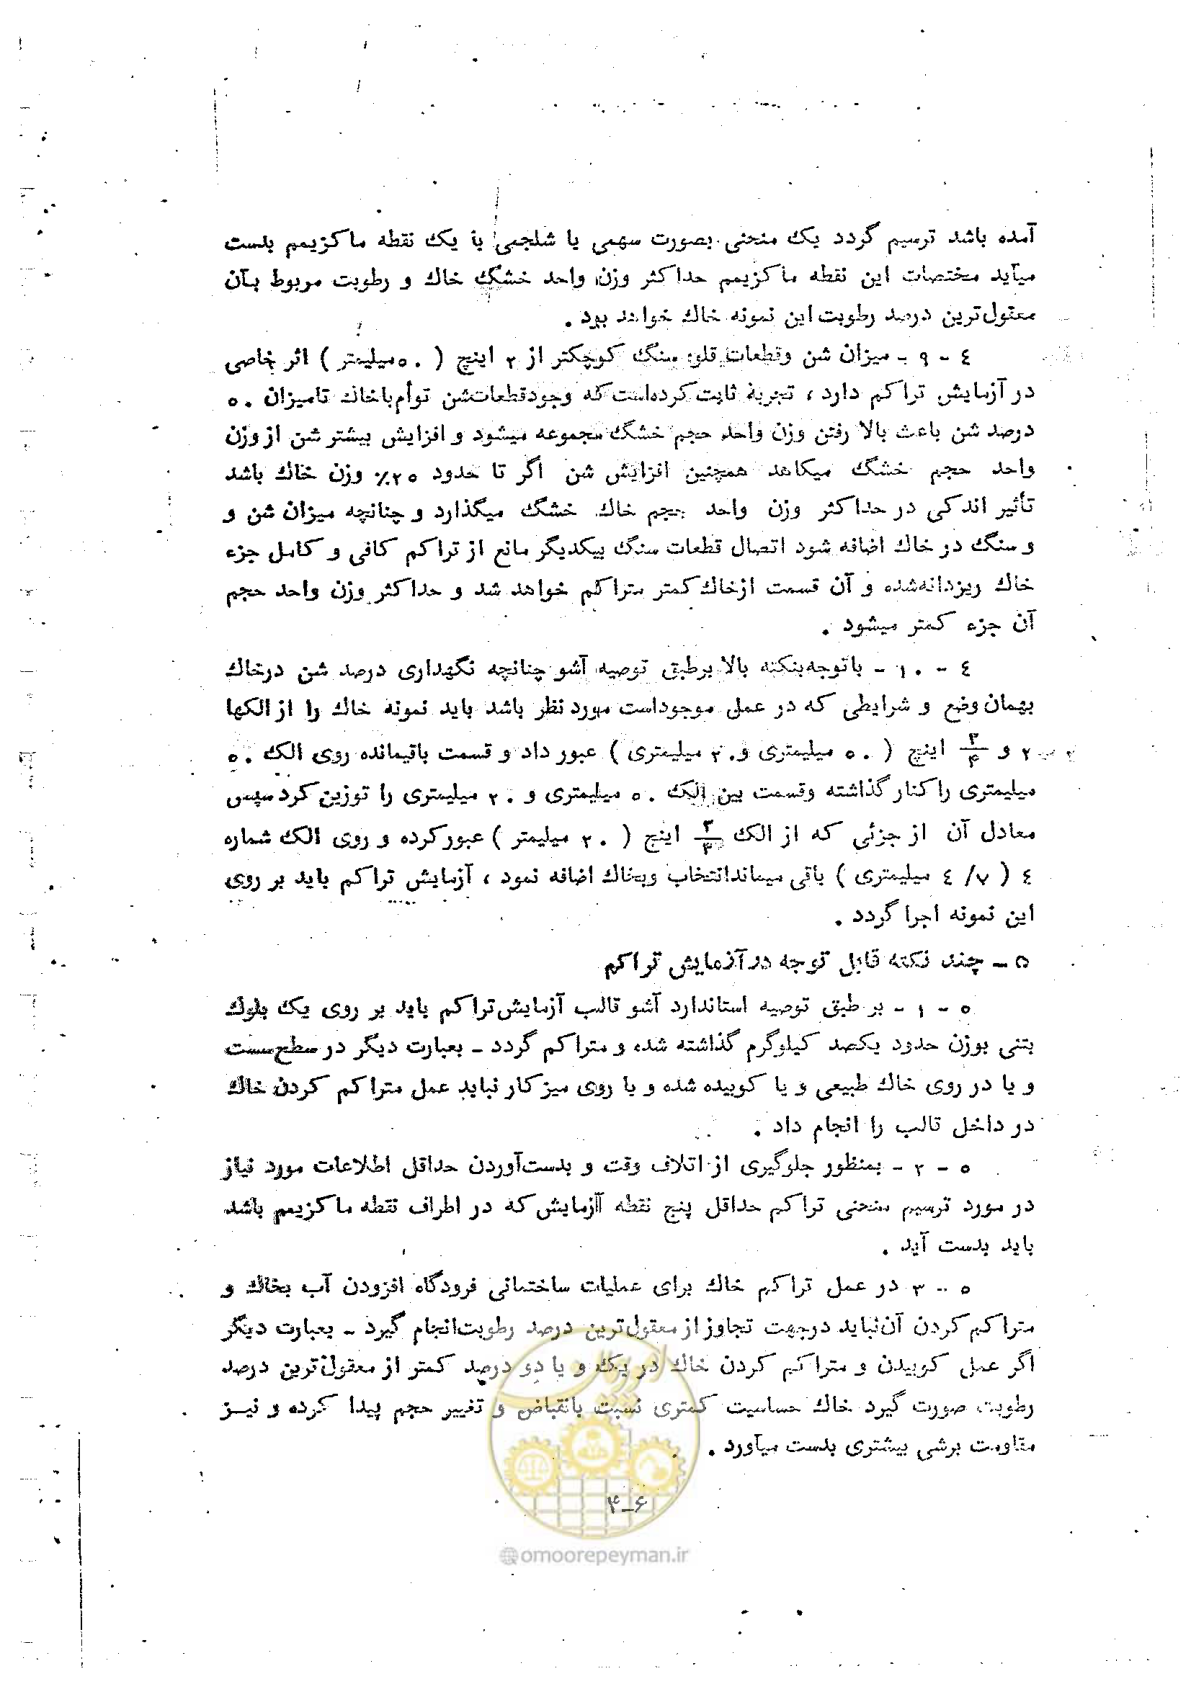 آمده باشد ترسیم گردد یک منحنی بصورت سهمی یا شلجمی با یک نقطه ماکزیمم بدست
میآید مختصات این نقطه ماکزیمم حداکثر وزن واحد خشگ خاک و رطوبت مربوط بآن
معقول‌ترین درصد رطوبت این نمونه خاک خواهد بود .
٤ - ٩ - میزان شن وقطعات قلوه سنگ کوچکتر از ٢ اینچ ( ٥٠ میلیمتر ) اثر خاصی
در آزمایش تراکم دارد ، تجربه ثابت کرده‌است که وجود قطعات شن توأم باخاک تامیزان ٥٠
درصد شن باعث بالا رفتن وزن واحد حجم خشگ مجموعه میشود و افزایش بیشتر شن از وزن
واحد حجم خشگ میکاهد همچنین افزایش شن اگر تا حدود ٢٥٪ وزن خاک باشد
تأثیر اندکی در حداکثر وزن واحد حجم خاک خشگ میگذارد و چنانچه میزان شن و
و سنگ در خاک اضافه شود اتصال قطعات سنگ بیکدیگر مانع از تراکم کافی و کامل جزء
خاک ریزدانه‌شده و آن قسمت ازخاک کمتر متراکم خواهد شد و حداکثر وزن واحد حجم
آن جزء کمتر میشود .
٤ - ١٠ - باتوجه‌بنکته بالا برطبق توصیه آشو چنانچه نگهداری درصد شن درخاک
بهمان وضع و شرایطی که در عمل موجوداست مورد نظر باشد باید نمونه خاک را از الکها
٢ و ٣/٤ اینچ ( ٥٠ میلیمتری و ٢٠ میلیمتری ) عبور داد و قسمت باقیمانده روی الک ٥٠
میلیمتری را کنار گذاشته وقسمت بین الک ٥٠ میلیمتری و ٢٠ میلیمتری را توزین کرد سپس
معادل آن از جزئی که از الک ٣/٤ اینچ ( ٢٠ میلیمتر ) عبور کرده و روی الک شماره
٤ ( ٤/٧ میلیمتری ) باقی میماند انتخاب وبخاک اضافه نمود ، آزمایش تراکم باید بر روی
این نمونه اجرا گردد .
٥ - چند نکته قابل توجه در آزمایش تراکم
٥ - ١ - بر طبق توصیه استاندارد آشو قالب آزمایش تراکم باید بر روی یک بلوک
بتنی بوزن حدود یکصد کیلوگرم گذاشته شده و متراکم گردد - بعبارت دیگر در سطح سست
و یا در روی خاک طبیعی و یا کوبیده شده و یا روی میز کار نباید عمل متراکم کردن خاک
در داخل قالب را انجام داد .
٥ - ٢ - بمنظور جلوگیری از اتلاف وقت و بدست آوردن حداقل اطلاعات مورد نیاز
در مورد ترسیم منحنی تراکم حداقل پنج نقطه آزمایش که در اطراف نقطه ماکزیمم باشد
باید بدست آید .
٥ - ٣ در عمل تراکم خاک برای عملیات ساختمانی فرودگاه افزودن آب بخاک و
متراکم کردن آن نباید درجهت تجاوز از معقول‌ترین درصد رطوبت انجام گیرد - بعبارت دیگر
اگر عمل کوبیدن و متراکم کردن خاک در یک و یا دو درصد کمتر از معقول‌ترین درصد
رطوبت صورت گیرد خاک حساسیت کمتری نسبت بانقباض و تغییر حجم پیدا کرده و نیز
مقاومت برشی بیشتری بدست میآورد .
۴-۶
@omoorepeyman.ir